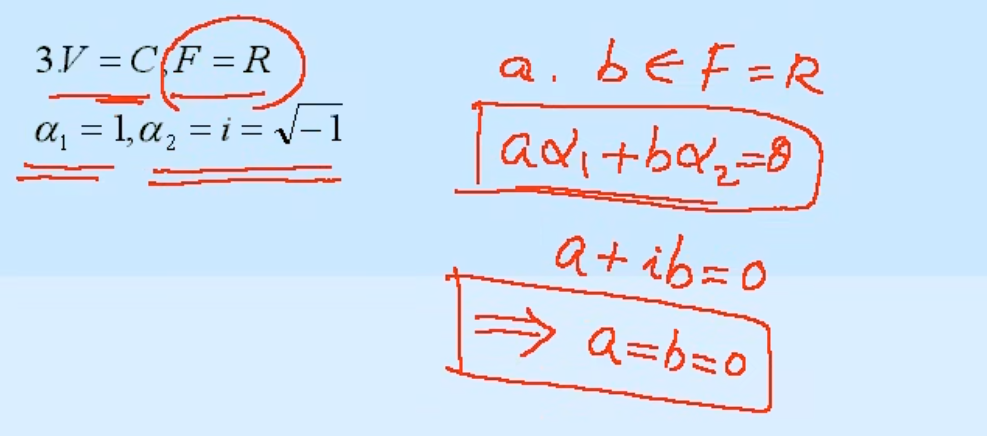 3.V = C, F = R
α₁ = 1, α₂ = i = √-1
a. b ∈ F = R
aα₁ + bα₂ = θ
a + ib = 0
⇒ a = b = 0